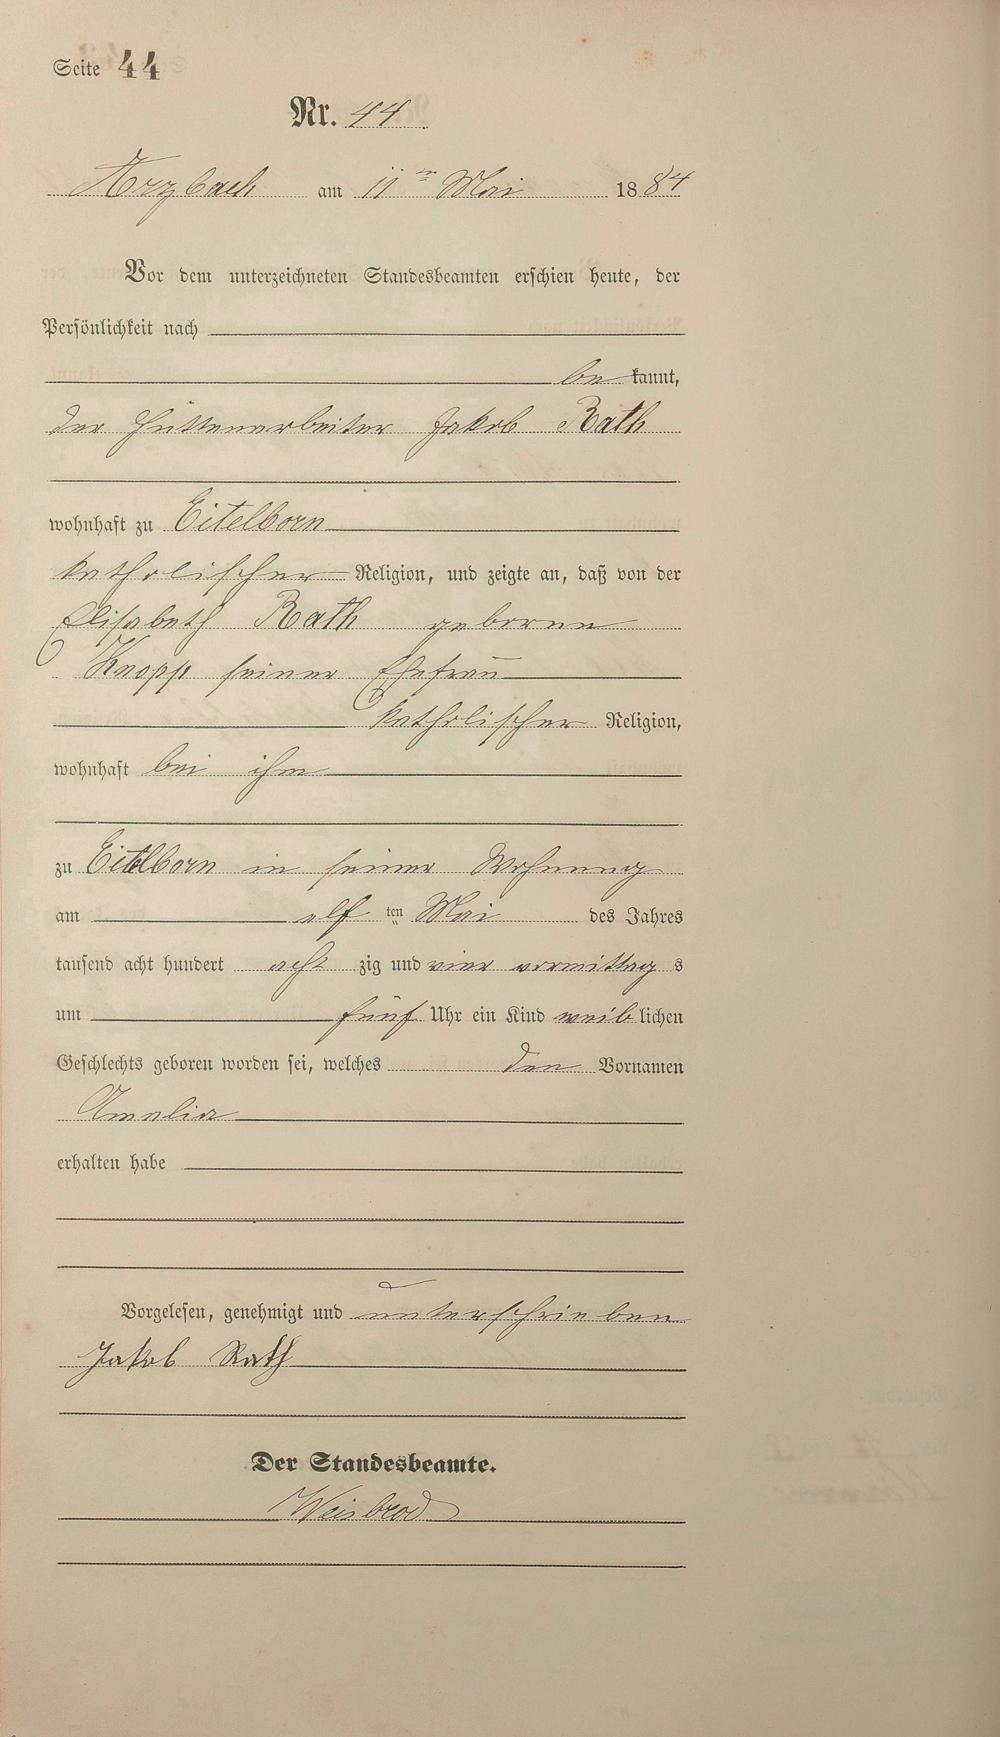 Seite 44
Nr. 44
Arzbach am 11ten Mai 1884
Vor dem unterzeichneten Standesbeamten erschien heute, der
Persönlichkeit nach
be kannt,
der Hüttenarbeiter Jakob Rath
wohnhaft zu Eitelborn
katholischer Religion, und zeigte an, daß von der
Elisabeth Rath geborne
Knopp seiner Ehefrau
katholischer Religion,
wohnhaft bei ihm
zu Eitelborn in seiner Wohnung
am elf ten Mai des Jahres
tausend acht hundert acht zig und vier vormittag s
um fünf Uhr ein Kind weib lichen
Geschlechts geboren worden sei, welches den Vornamen
Amalia
erhalten habe
Vorgelesen, genehmigt und unterschrieben
Jakob Rath
Der Standesbeamte.
Weisbrod